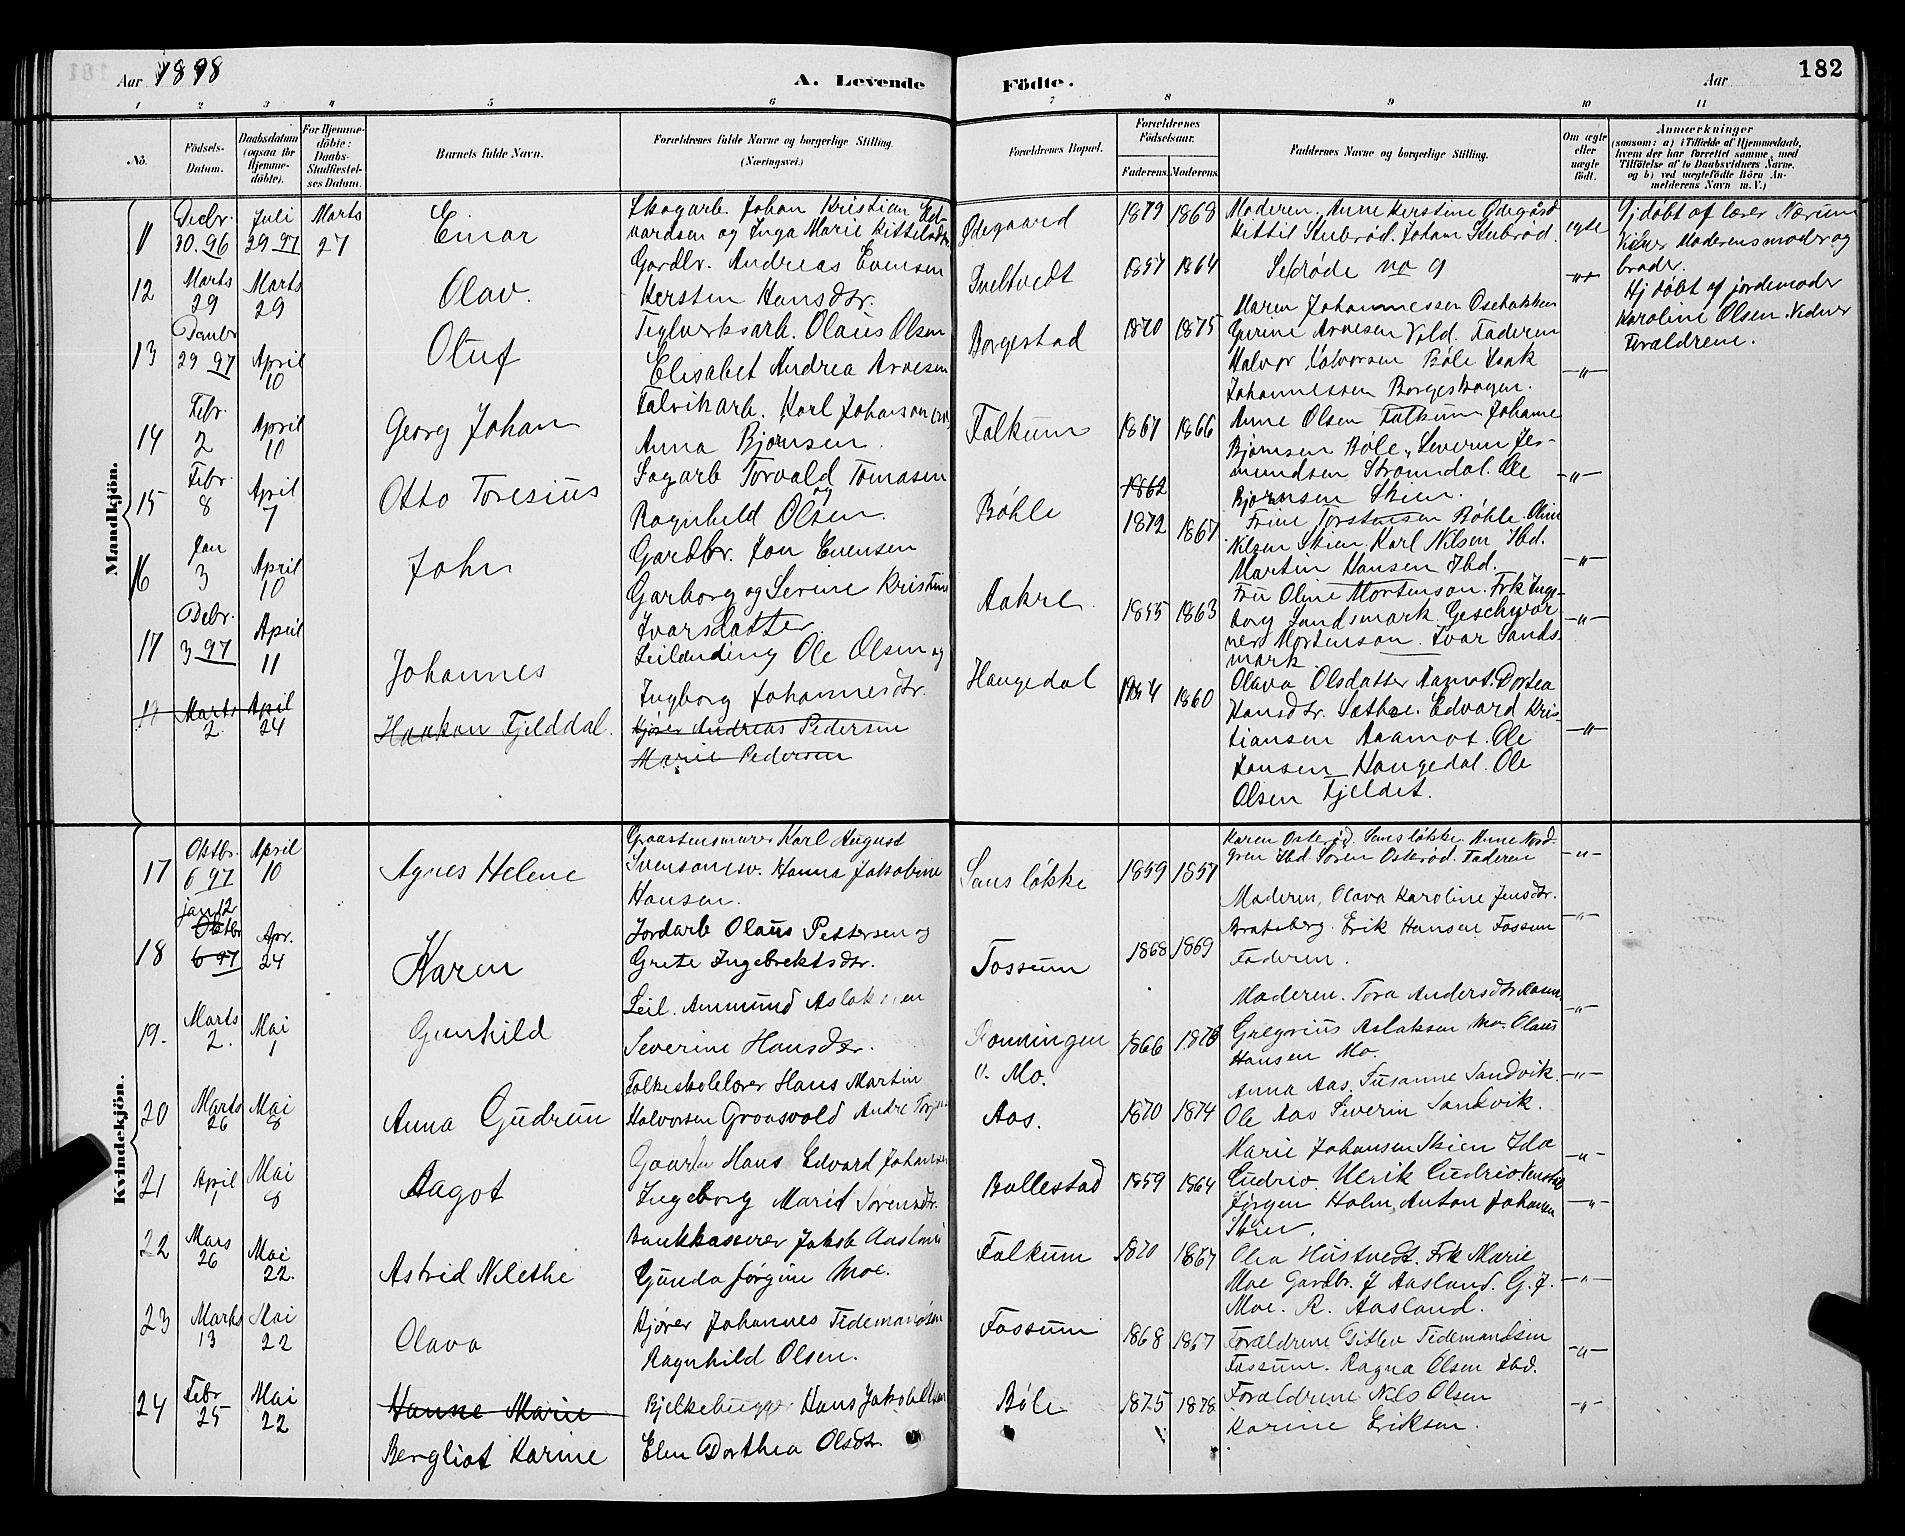 Aar 1898
A. Levende Födte.
Aar
182
1 2 3 4 5 6 7 8 9 10 11
No.
Födsels-Datum.
Daabsdatum (ogsaa for Hjemme-döbte).
For Hjemme-döbte: Daabs-Stadfæstel-ses Datum.
Barnets fulde Navn.
Forældrenes fulde Navne og borgerlige Stilling. (Næringsvei.)
Forældrenes Bopæl.
Forældrenes Födselsaar.
Faderens. Moderens.
Faddernes Navne og borgerlige Stilling.
Om ægte eller uægte födt.
Anmærkninger
(saasom: a) i Tilfælde af Hjemmedaab,
hvem der har forrettet samme, med
Tilföielse af to Daabsvidners Navne.
og b) ved uægtefödte Börn An-
melderens Navn m. V.)
Mandkjön.
11 Decbr. 30. 96 Juli 29 97 Marts 27
Einar
Skogarb. Johan Kristian Ed-
vardsen og Inga Marie Kittelsdtr.
Ødegaard 1879 1868
Moderen. Anne Kerstine Odegård
Kittil Stubrød. Johan Stubrød.
egte
Hj döbt af lærer Nærum
Moderens moder og
broder.
12 Marts 29 Marts 29
Olav.
Gardbr. Andreas Evensen
Kersten Hansdtr.
1857 1864
Se no 9
-"-
Hj döbt af jordemoder
Karoline Olsen.
Forældrene.
13 Decmbr 29 97 April 10
Oluf
Teglverksarb. Olaus Olsen
Elisabet Andrea Arvesen
Borgestad 1870 1875
Maren Johannessen Osebakken
Gurine Arvesen Vold. Faderen
Halvor Halvorsen Böle Isak
Johannessen Borgeskogen.
-"-
14 Febr. 2 April 10
Georg Johan
Fabrikarb. Karl Johanson
Anna Bjørnsen.
Falkum 1867 1866
Anne Olsen Falkum Johanne
Bjørnsen Böle, Severin Jes-
mundsen Strømdal. Ole
Bjørnsen Skien.
-"-
15 Febr. 8 April 7
Otto Toresius
Sagarb Torvald Tomasen
og
Ragnhild Olsen.
Böhle 1862 1872 1867
Trine Torstensen Böhle. Oline
Nilsen Skien. Karl Nilsen Ibd.
Martin Hansen Ibd.
-"-
16 Jan 3 April 10
John
Gardbr. Jon Evensen
Garborg og Serine Kristine
Ivarsdatter
Aakre. 1855 1863
Fru Oline Mortenson. Frk Inge-
borg Landsmark. Geschwor
ner Mortenson. Ivar Lands-
mark.
-"-
17 Debr. 3 97 April 11
Johannes
Leilending Ole Olsen og
Ingborg Johannesdtr.
Haugedal 1854 1860
Olava Olsdatter Aamot. Dortea
Hansdtr. Sæthre. Edvard Kris
tiansen Aamot. Ole
Hansen Haugedal. Ole
Olsen Fjeldet.
-"-
19 Marts 2 April 24
Haakon Fjelddal.
Kjører Andreas Pedersen
Marie Pedersen
Kvindekjön.
17 Oktbr. 6 97 April 10
Agnes Helene
Graastensmurer Karl August
Svensonsv. Hanna Jakobine
Hansen.
Sansløkke 1859 1857
Karen Osterød. Sansløkke. Anne Nord-
gren Ibd Søren Osterød. Faderen
-"-
18 jan 12 Oktbr 6 97 Apr. 24
Karen
Jordarb Olaus Pettersen og
Grete Ingebrektsdtr.
Fossum 1868 1869
Moderen, Olava Karoline Jensdtr.
Bratsberg. Erik Hansen Fossum
Faderen.
-"-
19. Marts 2. Mai 1
Gunhild
Leil. Ammund Aslaksen
Severine Hansdtr.
Rønningen
u. Mo. 1866 1876
Moderen. Tora Andersdtr
Gregorius Aslaksen Mo. Olaus
Hansen Mo.
-"-
20 Marts 26 Mai 8
Anna Gudrun
Folkeskolelærer Hans Martin
Halvorsen Graasvold Andre
Aas. 1870 1874
Anna Aas. Susanne Sandvik.
Ole Aas Severin Sandvik.
-"-
21 April 1 Mai 8
Aagot
Gaarbr Hans Edvard Johansen
Ingeborg Marie Sørensdtr.
Bollestad 1859 1864
Marie Johansen Skien Ida
Cudrio. Ulrik Cudrio
Jørgen Holm, Anton Johansen
Skien.
-"-
22 Mars 26 Mai 22.
Astrid Nilethe
Bankkasserer Jakob Aasland
Gunda Jørgine Moe.
Falkum 1870 1867
Olea Hustvedt. Frk Marie
Moe Gardbr. J Aasland. G. J.
Moe. R. Aasland.
-"-
23 Marts 13 Mai 22
Olava
Kjører Johannes Tidemandsen
Ragnhild Olsen.
Fossum 1868 1867
Forældrene Gitlev Tidemandsen
Fossum. Ragna Olsen ibd.
-"-
24 Febr 25 Mai 22
Hanne Marie
Bergliot Karine
Bjelkehugger Hans Jakob Olsen
Elen Dorthea Olsdtr.
Böle 1875 1878
Forældrene Nils Olsen
Karine Eriksen.
-"-